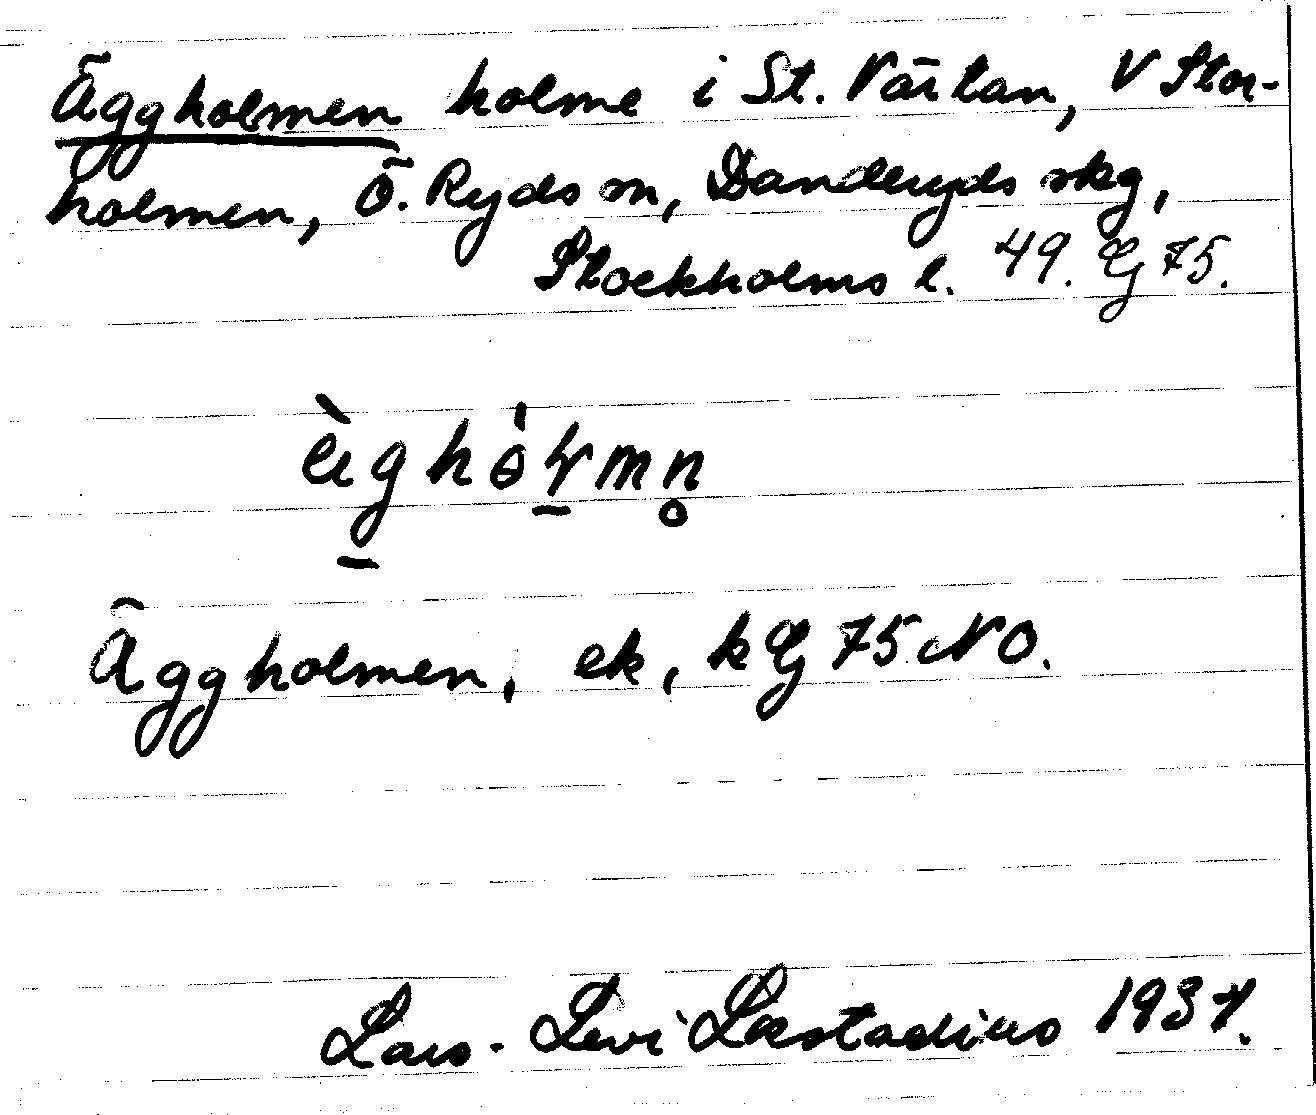 Äggholmen holme i St. Värtan, V Stor-
holmen, Ö. Ryds sn, Danderyds skg,
Stockholms l. 49. Eg 75.
Äggholmen, ek, k Eg 75 NO.
Lars-Levi Læstadius 1937.